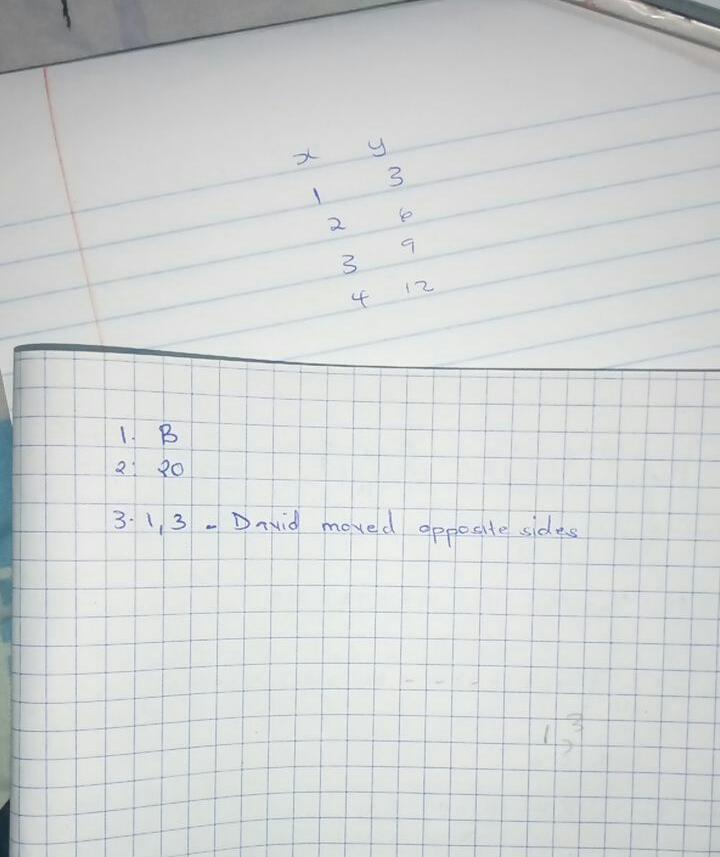 x y
1 3
2 6
3 9
4 12
1. B
2: 20
3. 1,3 - David moved opposite sides
1,3